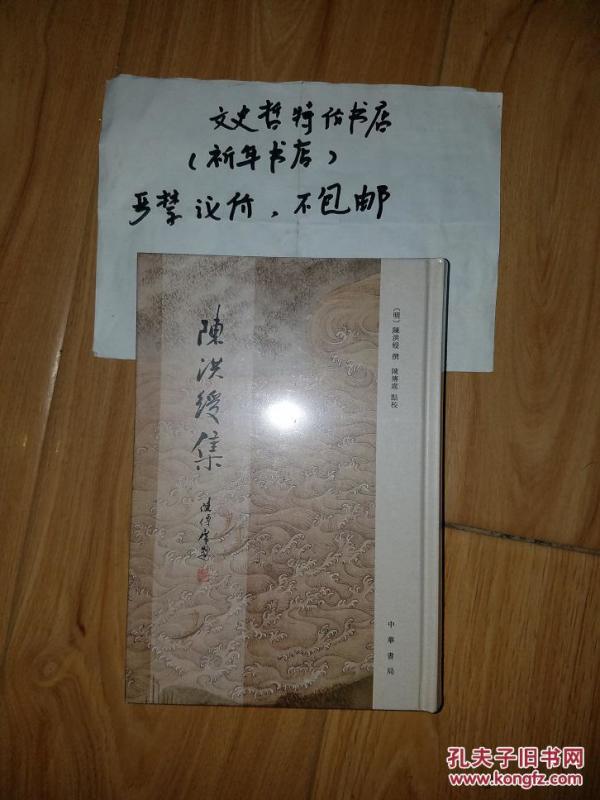 文史哲特价书店
（祈年书店）
严禁议价，不包邮
陳洪綬集
陳傳席題
〔明〕陳洪綬 撰 陳傳席 點校
中華書局
孔夫子旧书网
www.kongfz.com